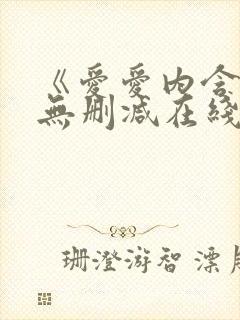 《爱爱内含
無删减在綫
珊澄游智 漂